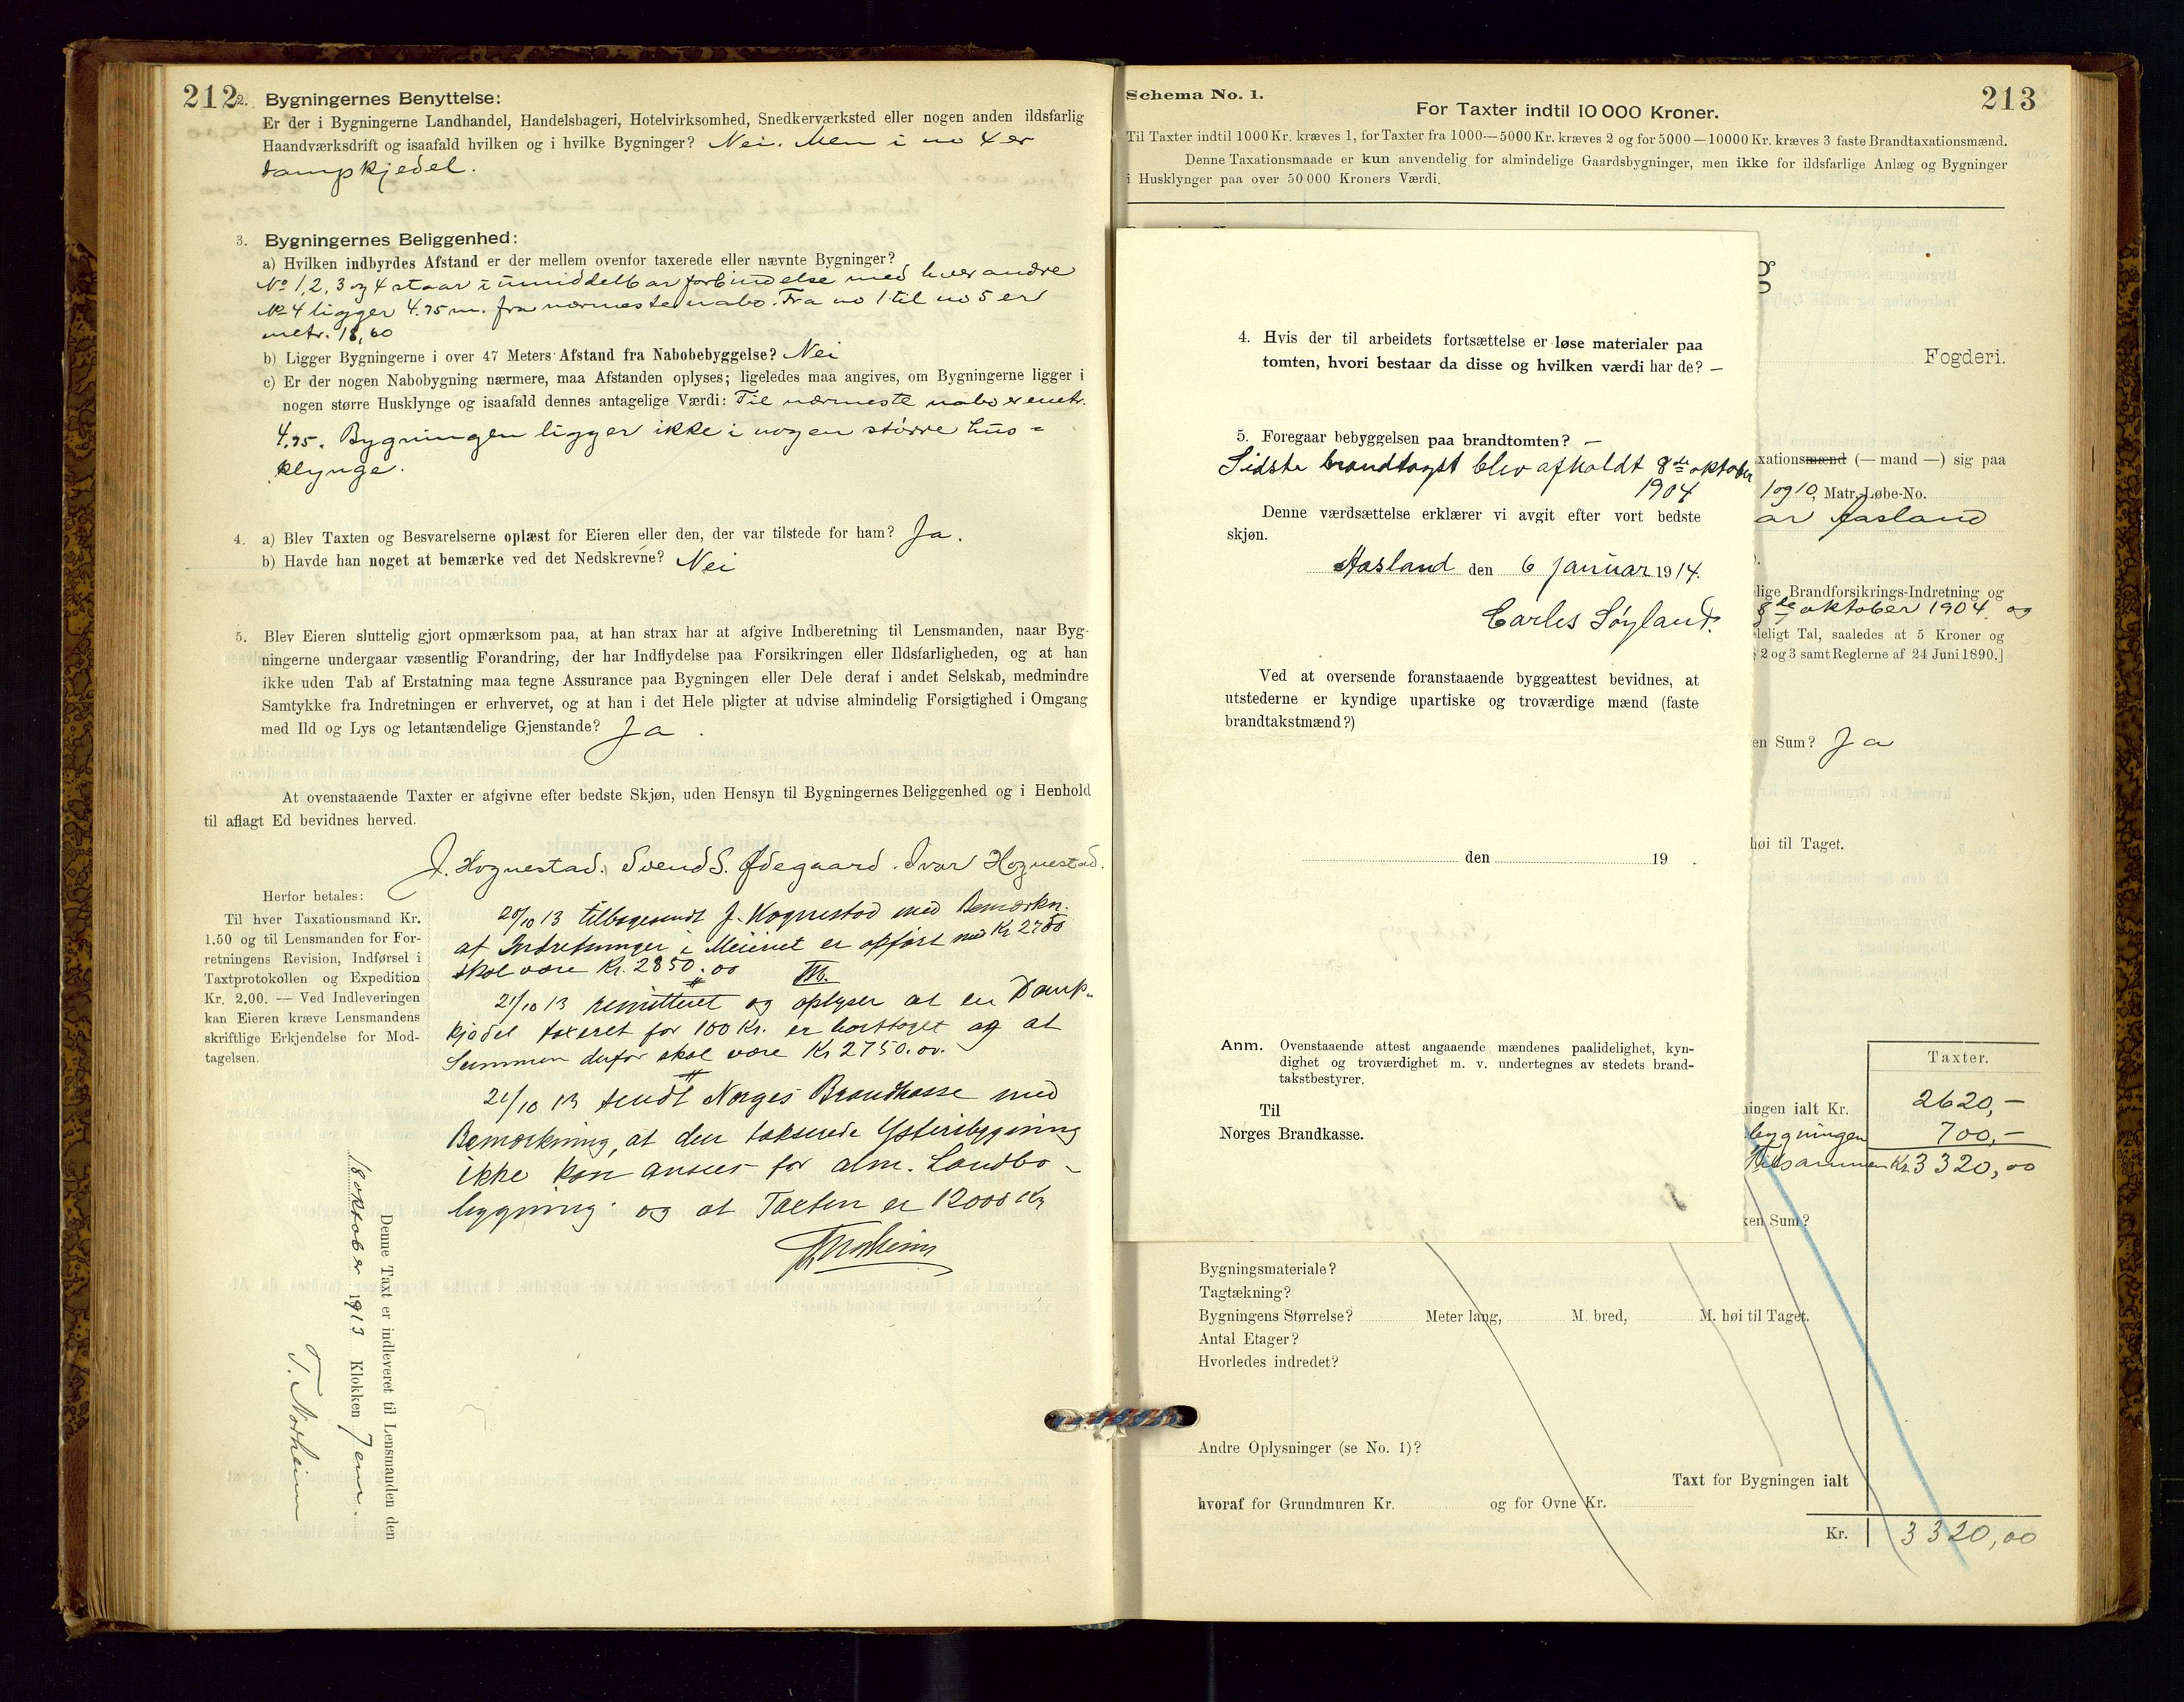 212
2. Bygningernes Benyttelse:
Er der i Bygningerne Landhandel, Handelsbageri, Hotelvirksomhed, Snedkerværksted eller nogen anden ildsfarlig
Haandværksdrift og isaafald hvilken og i hvilke Bygninger? Nei. Men i no 4 er
dampkjedel.
3. Bygningernes Beliggenhed:
a) Hvilken indbyrdes Afstand er der mellem ovenfor taxerede eller nævnte Bygninger?
No 1, 2, 3 og 4 staar i umiddelbar forbindelse med hverandre
No 4 ligger 4.75 m. fra nærmeste nabo. Fra no 1 til no 5 er
metr. 18,60
b) Ligger Bygningerne i over 47 Meters Afstand fra Nabobebyggelse? Nei
c) Er der nogen Nabobygning nærmere, maa Afstanden oplyses; ligeledes maa angives, om Bygningerne ligger i
nogen større Husklynge og isaafald dennes antagelige Værdi: Til nærmeste nabo er metr.
4.75. Bygningen ligger ikke i nogen større hus=
klynge.
4. a) Blev Taxten og Besvarelserne oplæst for Eieren eller den, der var tilstede for ham? Ja.
b) Havde han noget at bemærke ved det Nedskrevne? Nei
5. Blev Eieren sluttelig gjort opmærksom paa, at han strax har at afgive Indberetning til Lensmanden, naar Byg-
ningerne undergaar væsentlig Forandring, der har Indflydelse paa Forsikringen eller Ildsfarligheden, og at han
ikke uden Tab af Erstatning maa tegne Assurance paa Bygningen eller Dele deraf i andet Selskab, medmindre
Samtykke fra Indretningen er erhvervet, og at han i det Hele pligter at udvise almindelig Forsigtighed i Omgang
med Ild og Lys og letantændelige Gjenstande? Ja.
At ovenstaaende Taxter er afgivne efter bedste Skjøn, uden Hensyn til Bygningernes Beliggenhed og i Henhold
til aflagt Ed bevidnes herved.
J. Hognestad. Svend S. Ødegaard. Ivar Hognestad.
Herfor betales:
Til hver Taxationsmand Kr.
1.50 og til Lensmanden for For-
retningens Revision, Indførsel i
Taxtprotokollen og Expedition
Kr. 2.00. — Ved Indleveringen
kan Eieren kræve Lensmandens
skriftlige Erkjendelse for Mod-
tagelsen.
20/10 13 tilbagesendt J. Hognestad med Bemærkn.
at Indretninger i Meieriet er opført med Kr 2750
skal være Kr. 2850.00 Th.
21/10 13 remitteret og oplyser at en Damp-
kjedel taxeret for 100 Kr. er borttaget og at
Summen derfor skal være Kr 2750.00.
21/10 13 sendt Norges Brandkasse med
Bemærkning, at den takserede Ysteribygning
ikke kan ansees for alm. Landbo-
bygning og at Taxten er 12000 Kr
T Norheim
Denne Taxt er indleveret til Lensmanden den
18 oktober 1913 Klokken 7 em.
T. Norheim
Schema No. 1.
213
For Taxter indtil 10 000 Kroner.
Til Taxter indtil 1000 Kr. kræves 1, for Taxter fra 1000—5000 Kr. kræves 2 og for 5000—10000 Kr. kræves 3 faste Brandtaxationsmænd.
Denne Taxationsmaade er kun anvendelig for almindelige Gaardsbygninger, men ikke for ildsfarlige Anlæg og Bygninger
i Husklynger paa over 50 000 Kroners Værdi.
g
Fogderi.
4. Hvis der til arbeidets fortsættelse er løse materialer paa
tomten, hvori bestaar da disse og hvilken værdi har de? —
5. Foregaar bebyggelsen paa brandtomten? —
Sidste brandtagst blev afholdt 8de oktober
1904
Denne værdsættelse erklærer vi avgit efter vort bedste
skjøn.
Aasland den 6 januar 1914.
Carles Søyland.
Ved at oversende foranstaaende byggeattest bevidnes, at
utstederne er kyndige upartiske og troværdige mænd (faste
brandtakstmænd?)
den 19 .
Anm. Ovenstaaende attest angaaende mændenes paalidelighet, kyn-
dighet og troværdighet m. v. undertegnes av stedets brand-
takstbestyrer.
Til
Norges Brandkasse.
xationsmænd (— mand —) sig paa
1 og 10, Matr. Løbe-No.
ar Aasland
lige Brandforsikrings-Indretning og
8de oktober 1904 og
leligt Tal, saaledes at 5 Kroner og
2 og 3 samt Reglerne af 24 Juni 1890.]
en Sum? Ja
høi til Taget.
Taxter.
ningen ialt Kr. 2620,—
bygningen 700,—
Tilsammen Kr. 3320,00
ken Sum?
Bygningsmateriale?
Tagtækning?
Bygningens Størrelse? Meter lang, M. bred, M. høi til Taget.
Antal Etager?
Hvorledes indredet?
Andre Oplysninger (se No. 1)?
Taxt for Bygningen ialt
hvoraf for Grundmuren Kr. og for Ovne Kr.
Kr. 3320,00